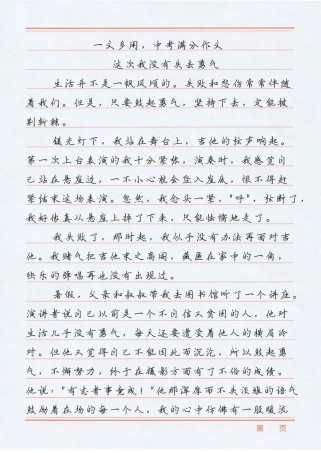 一文多用，中考满分作文
这次我没有失去勇气
生活并不是一帆风顺的。失败和悲伤常常伴随
着我们。但是，只要鼓起勇气，坚持下去，定能披
荆斩棘。
镁光灯下，我站在舞台上，吉他的弦声响起。
第一次上台表演的我十分紧张，演奏时，我感觉自
己站在悬崖边，一不小心就会坠入崖底，恨不得赶
紧结束这场表演。忽然，我念头一紧，"呼"，弦断了，
我好像真从悬崖上掉了下来，只能怯懦地走了。
我失败了，那时起，我似乎没有办法再面对吉
他。我赌气把吉他束之高阁，藏匿在家中的一角，
快乐的弹唱再也没有出现过。
暑假，父亲和叔叔带我去图书馆听了一个讲座。
演讲者说自己以前是一个不自信又贫困的人，他对
生活几乎没有勇气，每天还要遭受着他人的横眉冷
对。但他又觉得自己不能因此而沉沦，所以鼓起勇
气，不懈努力，终于在摄影方面有了不俗的成绩。
他说："有志者事竟成！"他那浑厚而不失活难的语气
鼓励着在场的每一个人，我的心中仿佛有一股暖流
第 页